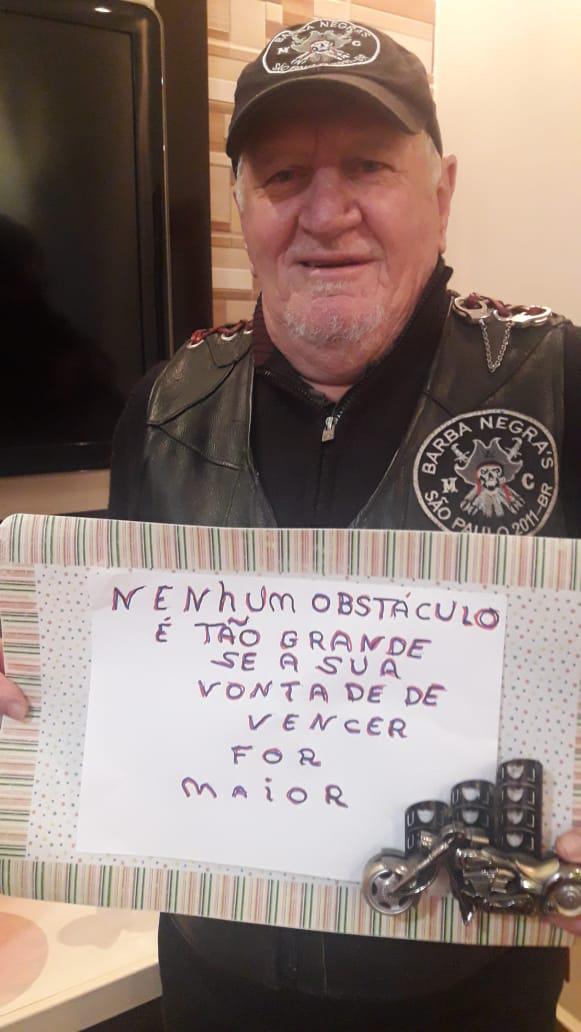 BARBA NEGRA'S
M C
BARBA NEGRA'S
M C
SÃO PAULO 2011-BR
NENhUM OBSTÁCULO
É TÃO GRANDE
SE A SUA
VONTADE DE
VENCER
FOR
MAiOR